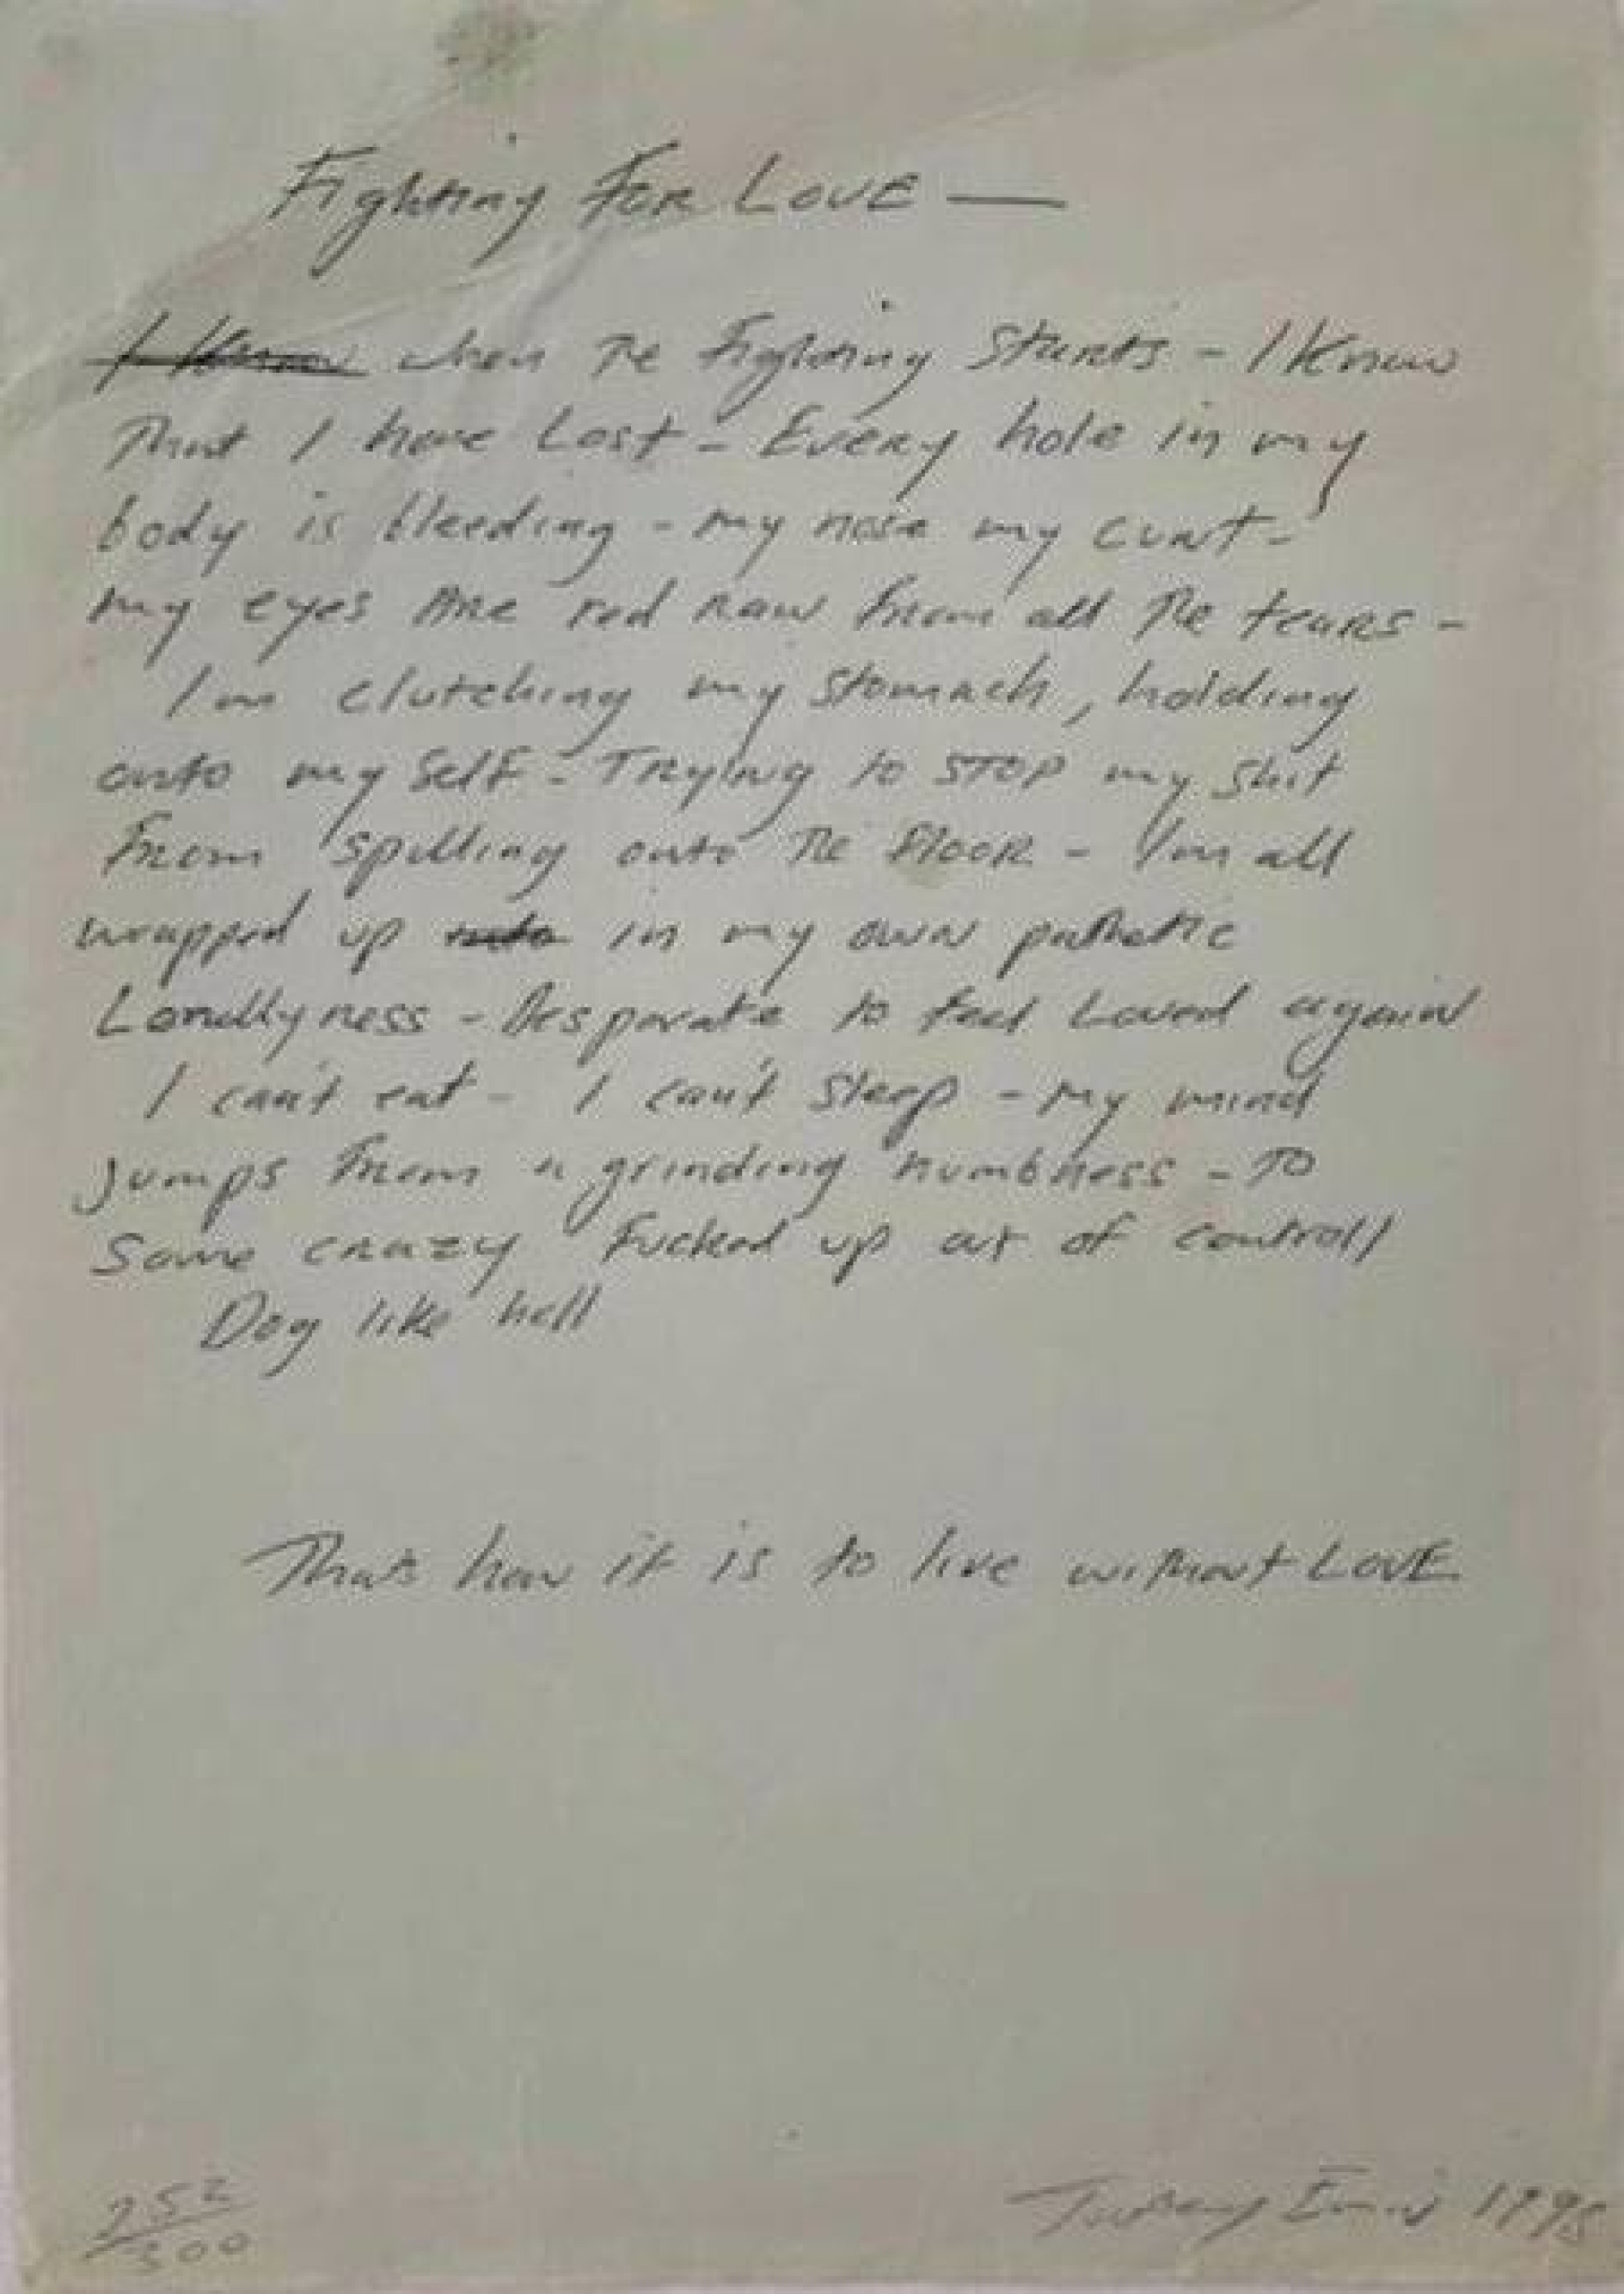 Fighting FOR LOVE —
I Know when The Fighting Starts - I Know
That I have Lost - Every hole in my
body is bleeding - My nose my cunt -
My eyes Are red Raw From all The teaRs -
Im clutching my Stomach, holding
onto my SelF - TRying to STOP my Shit
From spilling onto The FlooR - Im all
wrapped up in my own pathetic
Lonellyness - Desparate to feel Loved again
I can't eat - I can't Sleep - My mind
Jumps From a grinding numbness - TO
Some crazy Fucked up out of controll
Dog like hell
Thats how it is to live without LOVE
252/500
Tracey Emin 1998